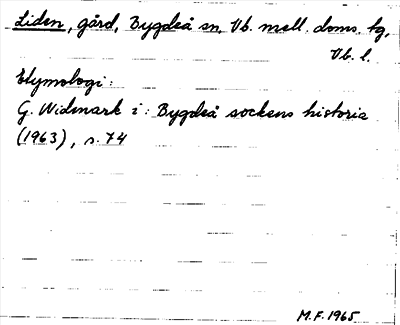 Liden, gård, Bygdeå sn, Vb. mell. doms. tg,
Vb. l.
Etymologi:
G. Widmark i: Bygdeå sockens historia
(1963), s. 74
M.F. 1965